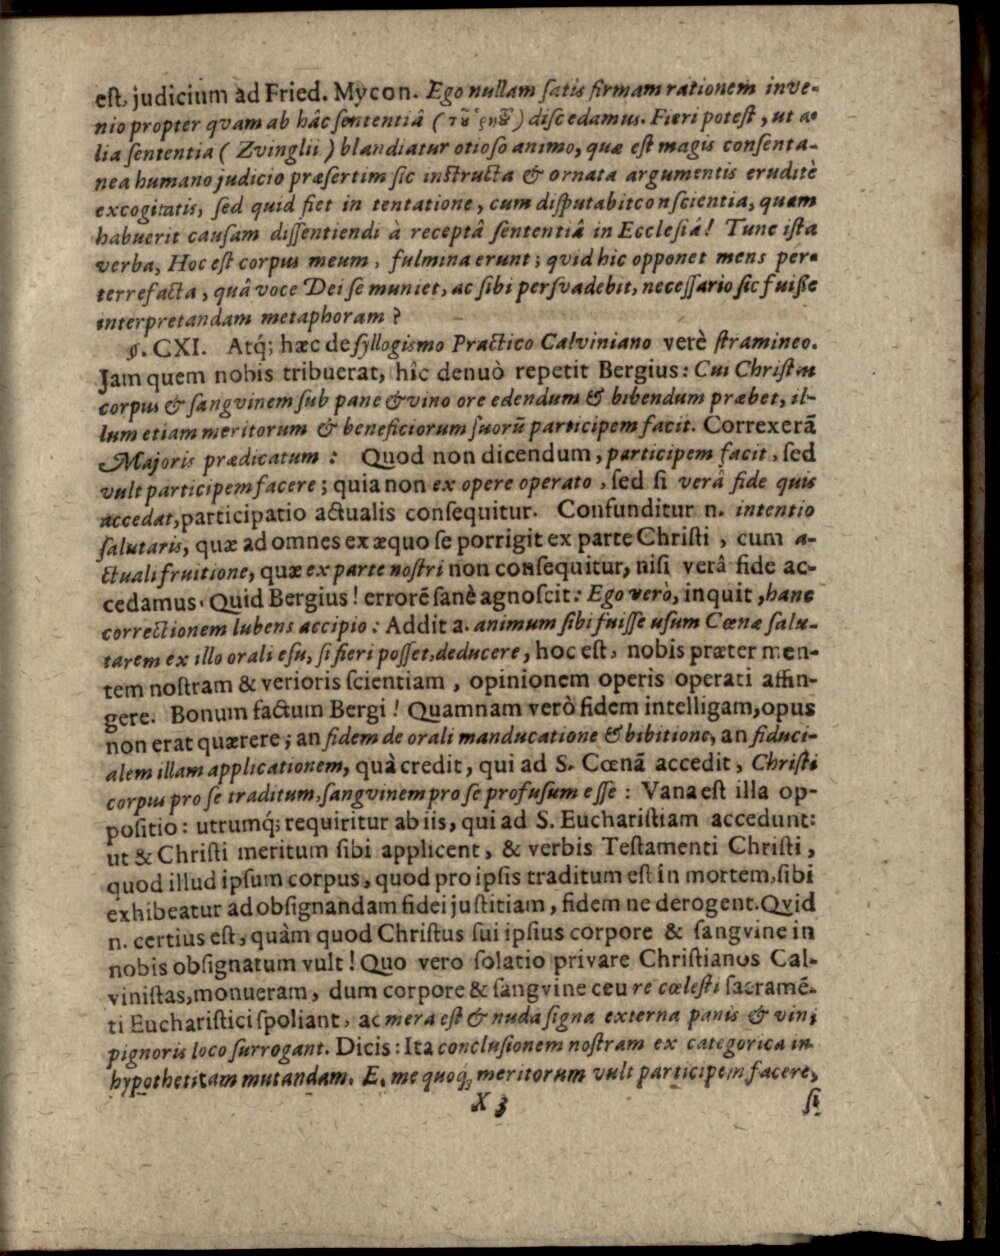 est, judicium ad Fried. Mycon. Ego nullam satis firmam rationem inve-
nio propter qvam ab hâc sententiâ (τȣ͂ ῥητȣ͂) discedamus. Fieri potest, ut a-
lia sententia (Zvinglii) blandiatur otioso animo, quæ est magis consenta-
nea humano judicio præsertim sic instructa & ornata argumentis eruditè
excogitatis, sed quid fiet in tentatione, cum disputabit conscientia, quam
habuerit causam dissentiendi à receptâ sententiâ in Ecclesiâ! Tunc ista
verba, Hoc est corpus meum, fulmina erunt; qvid hic opponet mens per-
terrefacta, quâ voce Dei se muniet, ac sibi persvadebit, necessario sic fuisse
interpretandam metaphoram?
§. CXI. Atq́; hæc de syllogismo Practico Calviniano verè stramineo.
Jam quem nobis tribuerat, hîc denuò repetit Bergius: Cui Christus
corpus & sangvinem sub pane & vino ore edendum & bibendum præbet, il-
lum etiam meritorum & beneficiorum suorũ participem facit. Correxerã
Majoris prædicatum: Quod non dicendum, participem facit, sed
vult participem facere; quia non ex opere operato, sed si verâ fide quis
accedat, participatio actualis consequitur. Confunditur n. intentio
salutaris, quæ ad omnes ex æquo se porrigit ex parte Christi, cum a-
ctuali fruitione, quæ ex parte nostri non consequitur, nisi verâ fide ac-
cedamus. Quid Bergius! errorẽ sanè agnoscit: Ego verò, inquit, hanc
correctionem lubens accipio: Addit a. animum sibi fuisse usum Cœnæ salu-
tarem ex illo orali esu, si fieri posset, deducere, hoc est, nobis præter men-
tem nostram & verioris scientiam, opinionem operis operati affin-
gere. Bonum factum Bergi! Quamnam verò fidem intelligam, opus
non erat quærere; an fidem de orali manducatione & bibitione, an fiduci-
alem illam applicationem, quâ credit, qui ad S. Cœnã accedit, Christi
corpus pro se traditum, sangvinem pro se profusum esse: Vana est illa op-
positio: utrumq́; requiritur ab iis, qui ad S. Eucharistiam accedunt:
ut & Christi meritum sibi applicent, & verbis Testamenti Christi,
quod illud ipsum corpus, quod pro ipsis traditum est in mortem, sibi
exhibeatur ad obsignandam fidei justitiam, fidem ne derogent. Qvid
n. certius est, quàm quod Christus sui ipsius corpore & sangvine in
nobis obsignatum vult! Quo vero solatio privare Christianos Cal-
vinistas, monueram, dum corpore & sangvine ceu re cœlesti sacramẽ-
ti Eucharistici spoliant, ac mera est & nuda signa externa panis & vini
pignoris loco surrogant. Dicis: Ita conclusionem nostram ex categorica in
hypotheticam mutandam. E. me quoq́; meritorum vult participem facere,
X 3
si